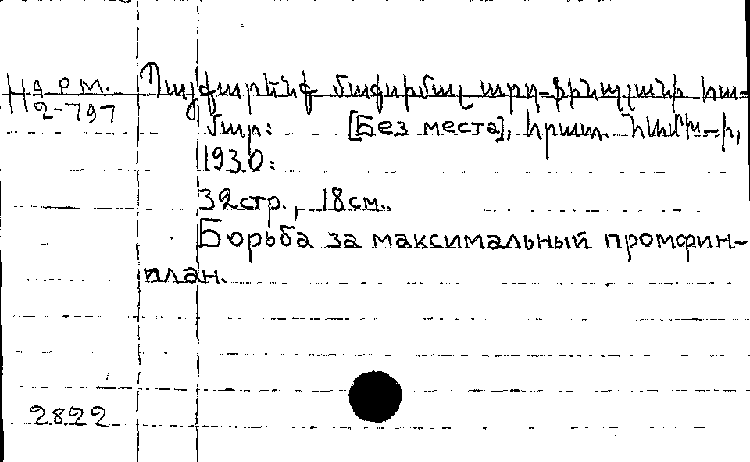 На рм.
2-797
Պայքարենք մաքսիմալ արդ-ֆինպլանի հա-
մար: [Без места], հրատ.
1930:
32стр., 18см.
Борьба за максимальный промфин-
план.
2822